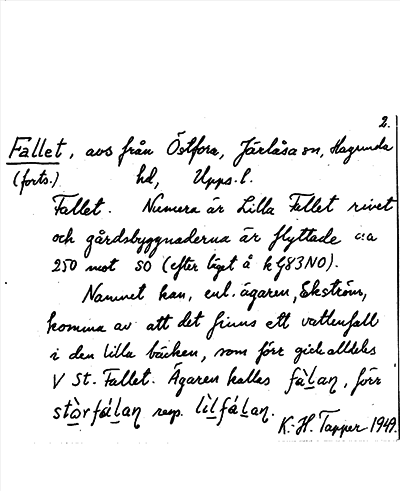 2.
Fallet, avs från Östfora, Järlåsa sn, Hagunda
(forts.) hd, Upps. l.
Fallet. Numera är Lilla Fallet rivet
och gårdsbyggnaderna är flyttade c:a
250 mot SO (efter läget å k G83NO).
Namnet kan, enl. ägaren, Ekström,
komma av att det finns ett vattenfall
i den lilla bäcken, som förr gick alldeles
V St. Fallet. Ägaren kallas fàlan, förr
stòrfálan resp. lìlfálan.
K.-H. Tapper 1949.